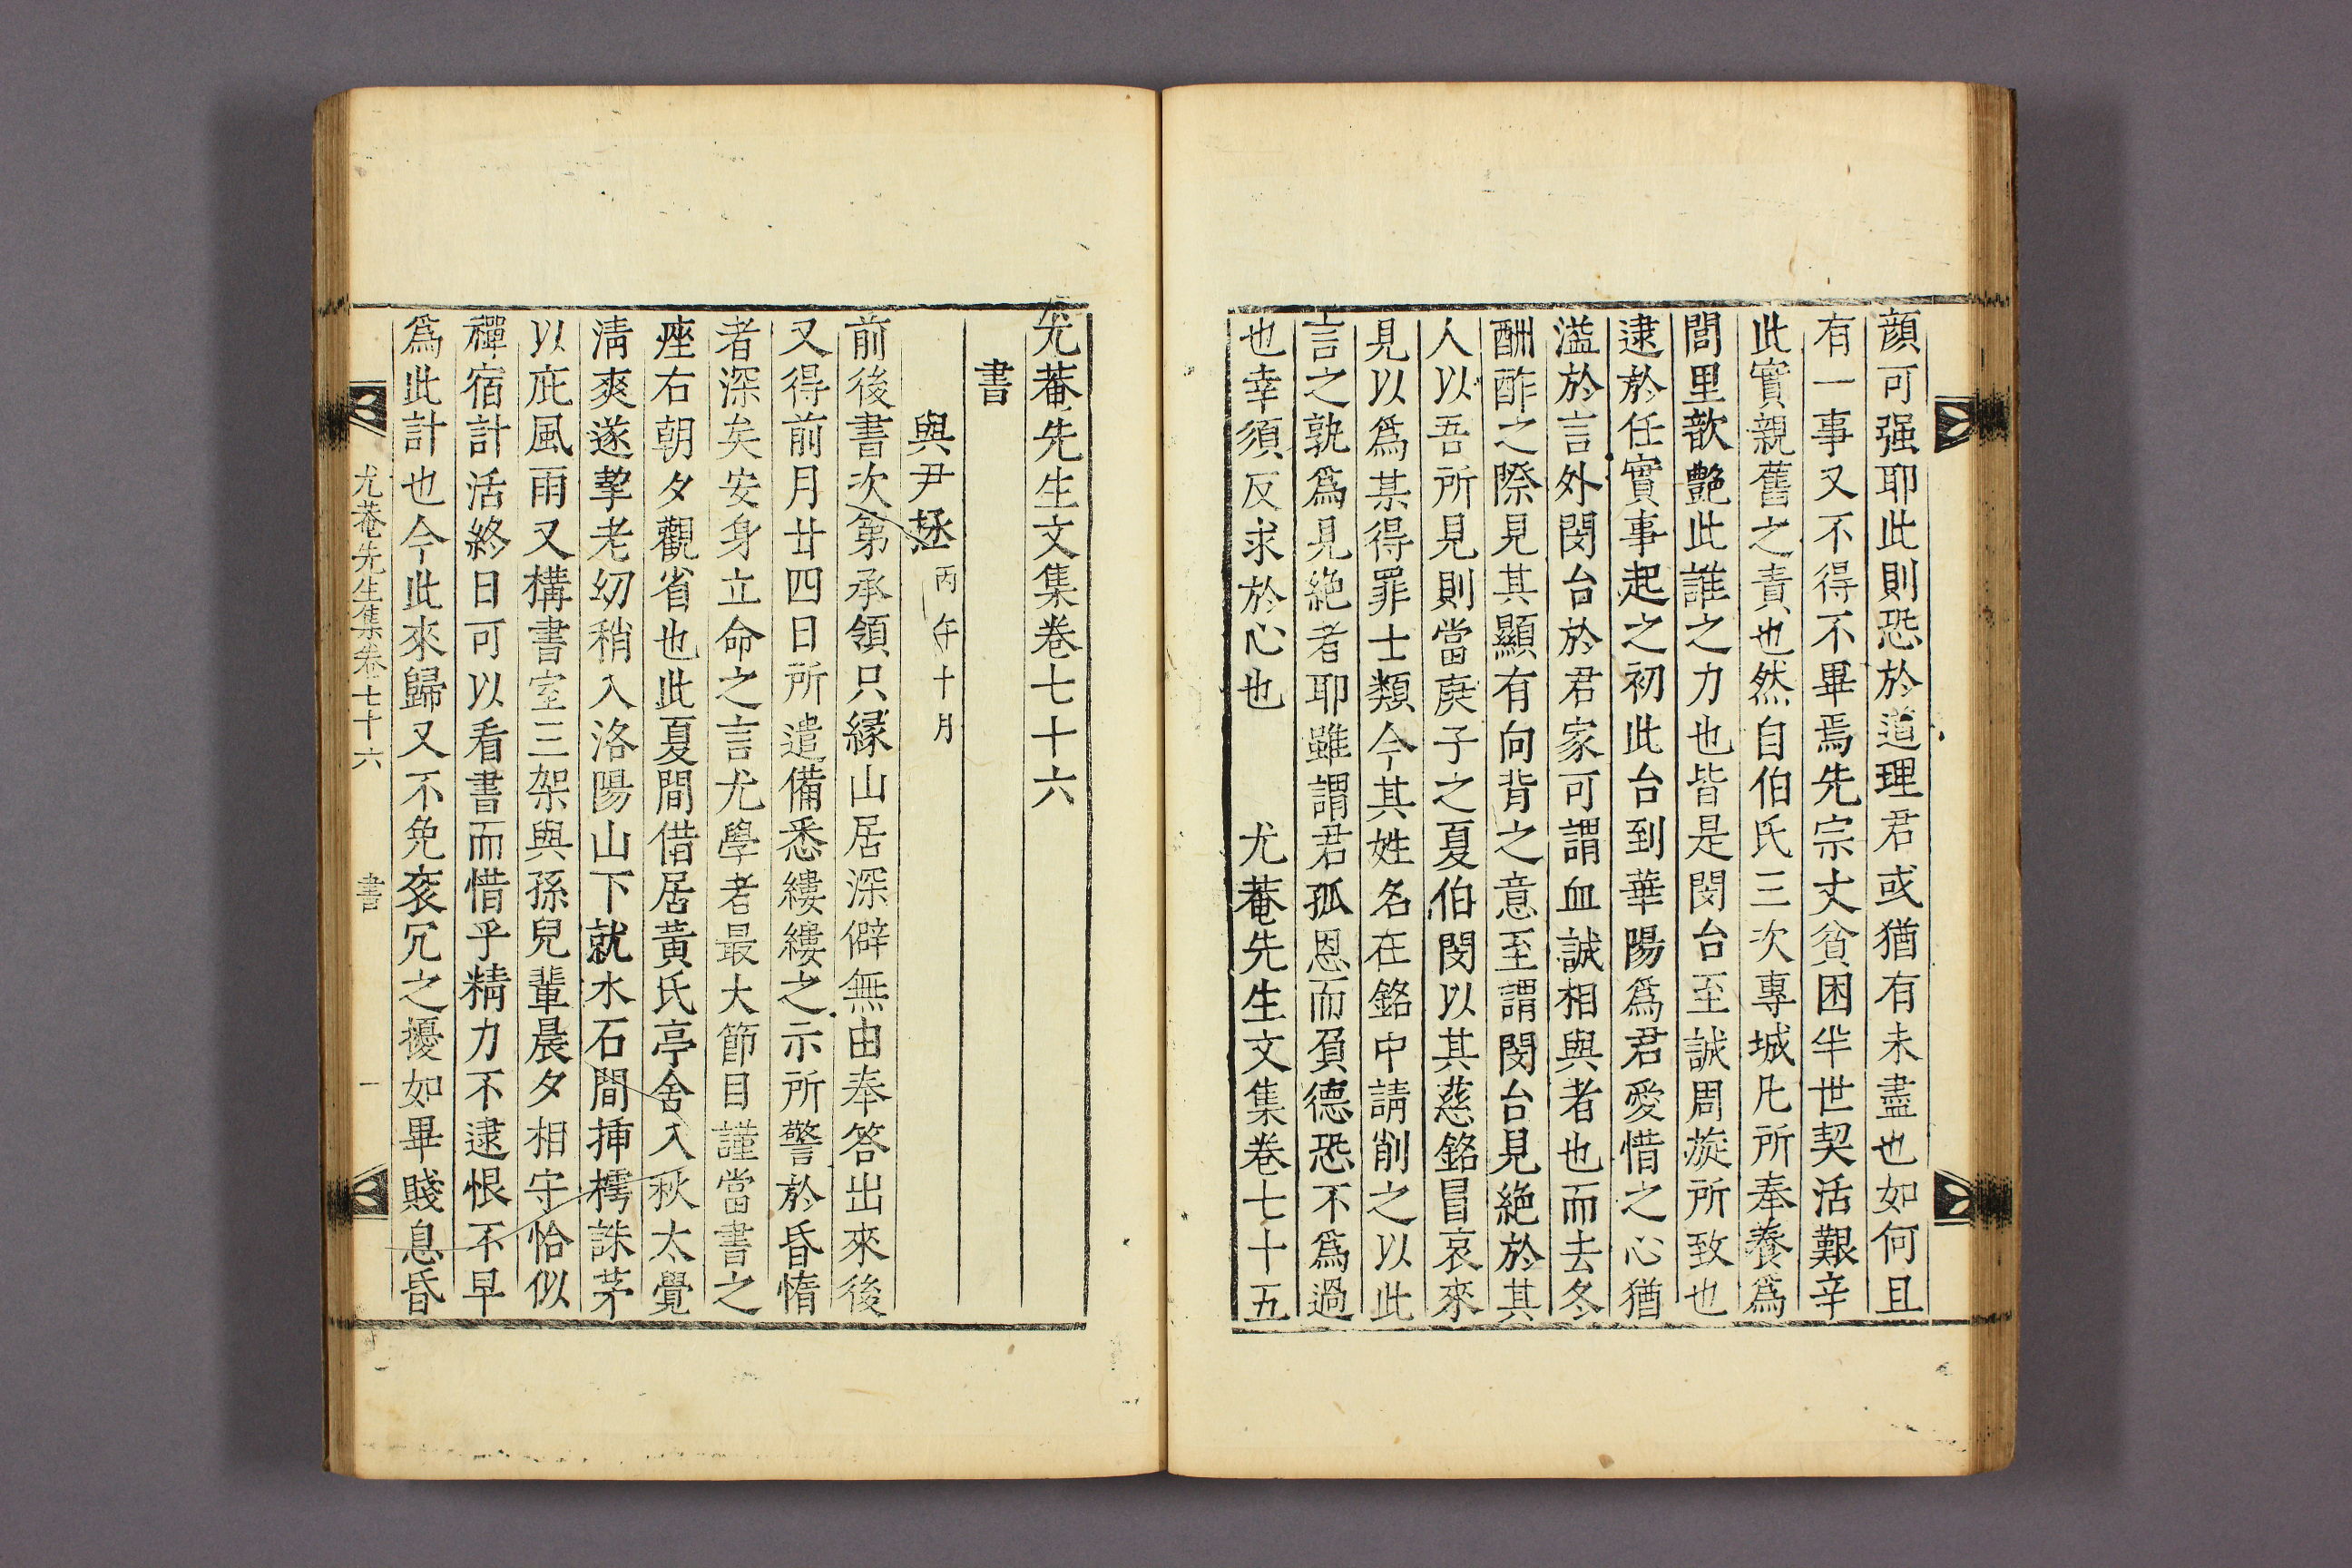 顔可强耶此則恐於道理君或猶有未盡也如何且
有一事又不得不畢焉先宗丈貧困半世契活艱辛
此實親舊之責也然自伯氏三次專城凡所奉養爲
閭里歆艶此誰之力也皆是閔台至誠周旋所致也
逮於任實事起之初此台到華陽爲君愛惜之心猶
溢於言外閔台於君家可謂血誠相與者也而去冬
酬酢之際見其顯有向背之意至謂閔台見絶於其
人以吾所見則當庚子之夏伯閔以其慈銘冒哀來
見以爲某得罪士類今其姓名在銘中請削之以此
言之孰爲見絶者耶雖謂君孤恩而負德恐不爲過
也幸須反求於心也　尤菴先生文集卷七十五
尤菴先生文集卷七十六
書
與尹拯丙午十月
前後書次第承領只緣山居深僻無由奉答出來後
又得前月廿四日所遣備悉縷縷之示所警於昏惰
者深矣安身立命之言尤學者最大節目謹當書之
座右朝夕觀省也此夏間借居黃氏亭舍入秋太覺
淸爽遂挈老幼稍入洛陽山下就水石間揷樗誅茅
以庇風雨又構書室三架與孫兒輩晨夕相守恰似
禪宿計活終日可以看書而惜乎精力不逮恨不早
爲此計也今此來歸又不免衮冗之擾如畢賤息昏
尤菴先生集卷七十六　書　一